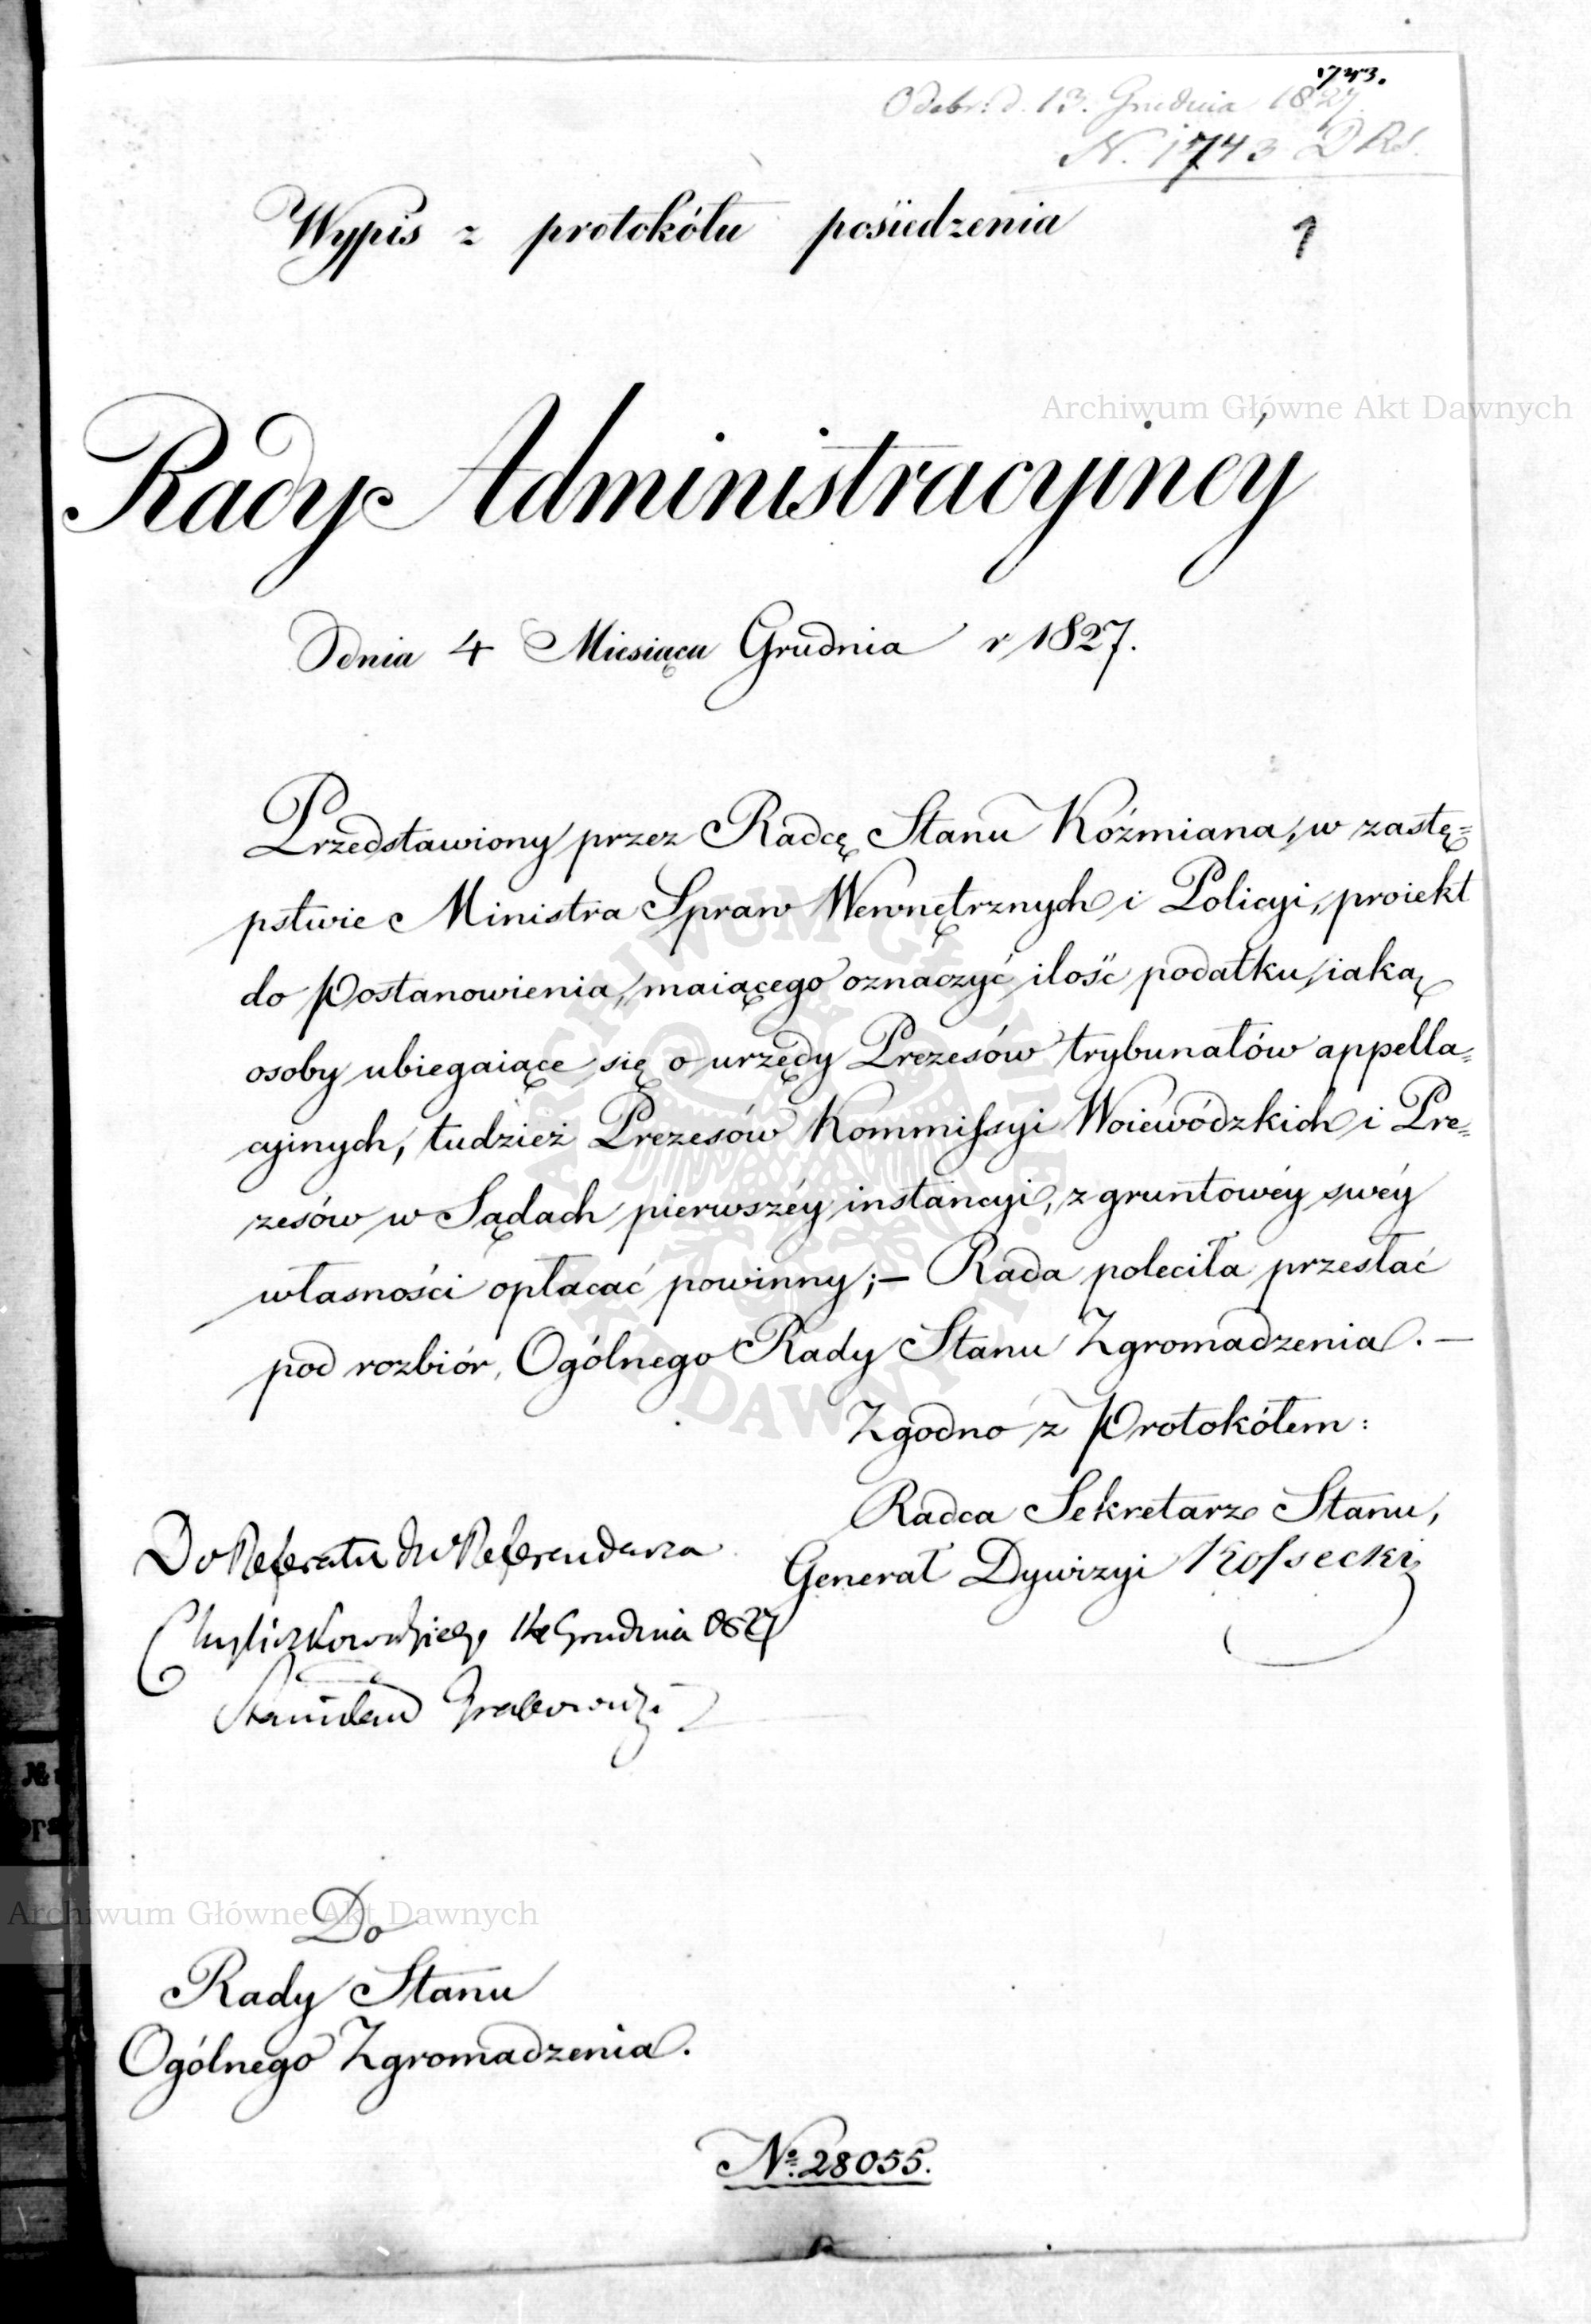 1743.
Odebr: d. 13. Grudnia 1827
N. 1743 DRS.
Wypis z protokółu posiedzenia
1
Archiwum Główne Akt Dawnych
Rady Administracyiney
Odnia 4 Miesiąca Grudnia r 1827.
Przedstawiony przez Radcę Stanu Koźmiana, w zastę=
pstwie Ministra Spraw Wewnętrznych i Policyi, proiekt
do Postanowienia, maiącego oznaczyć ilość podatku, iaką
osoby ubiegaiące się o urzędy Prezesów trybunałów appella=
cyinych, tudzież Prezesów Kommissyi Woiewódzkich i Pre=
zesów w Sądach pierwszéy instancyi, z gruntowéy swéy
własności opłacać powinny; — Rada poleciła przesłać
pod rozbiór, Ogólnego Rady Stanu Zgromadzenia. —
Zgodno z Protokółem:
Radca Sekretarz Stanu,
Generał Dywizyi Kossecki
Do Referatu JW Referendarza
14 Grudnia 1827
Stanisław Grabowski
Archiwum Główne Akt Dawnych
Do
Rady Stanu
Ogólnego Zgromadzenia.
No. 28055.
ARCHIWUM GŁÓWNE AKT DAWNYCH